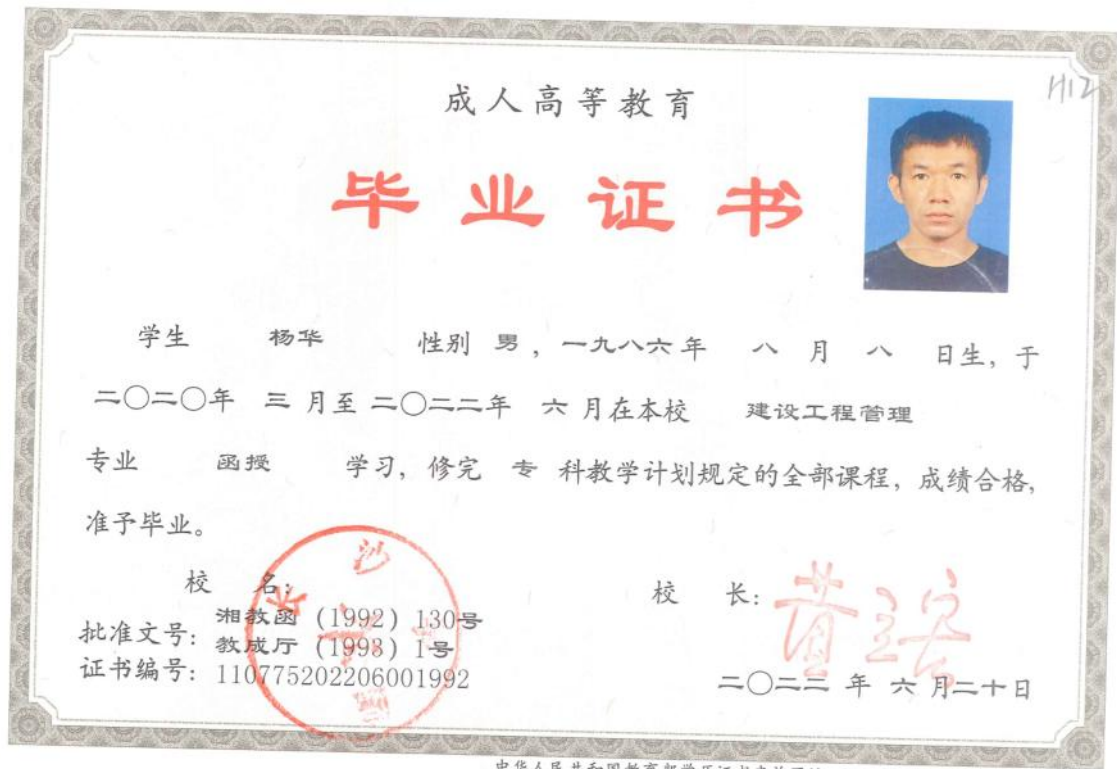 成人高等教育
H12
毕业证书
学生 杨华 性别 男，一九八六年 八 月 八 日生，于
二〇二〇年 三 月至 二〇二二年 六 月在本校 建设工程管理
专业 函授 学习，修完 专 科教学计划规定的全部课程，成绩合格，
准予毕业。
校 名：
校 长：
批准文号：湘教函（1992）130号
教成厅（1993）1号
证书编号：110775202206001992
二〇二二 年 六 月二十日
长沙